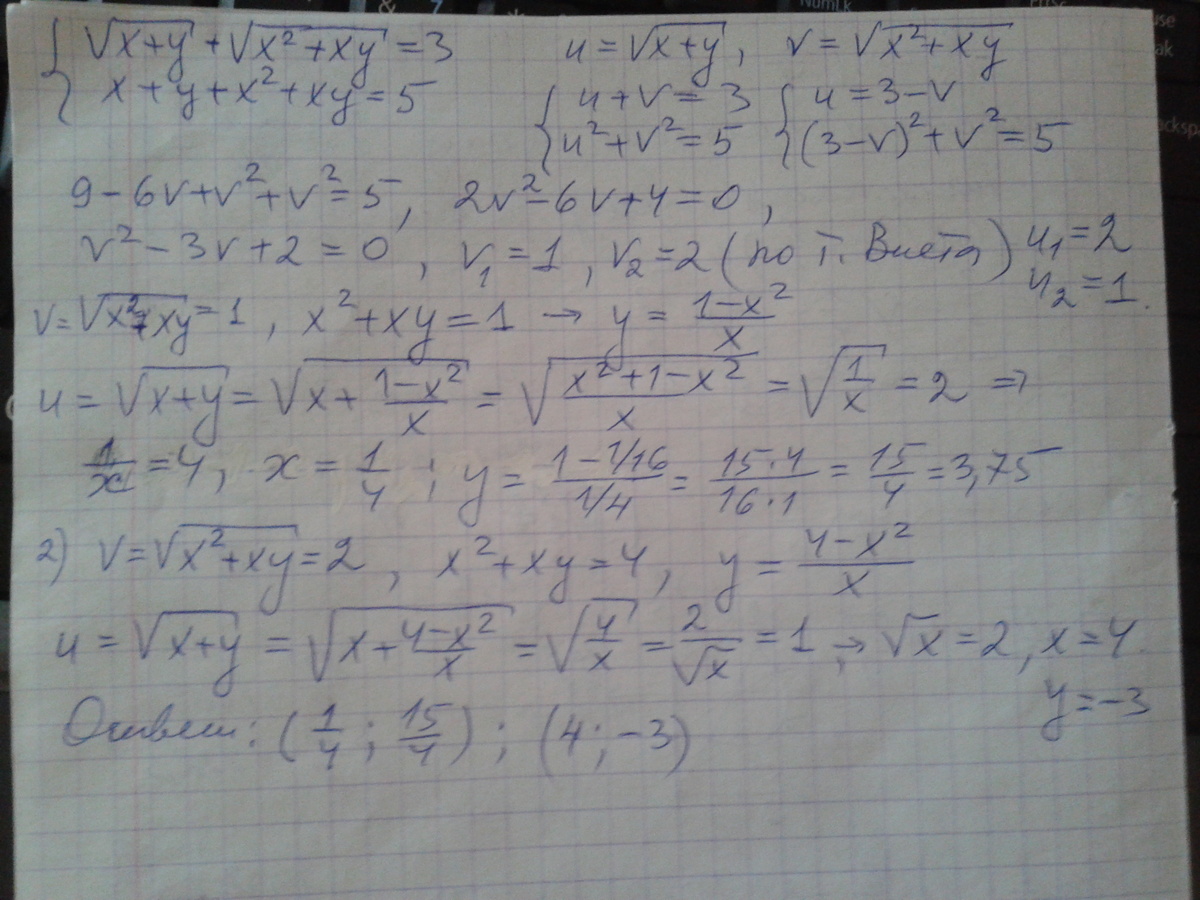 { √(x+y) + √(x²+xy) = 3     u = √(x+y), v = √(x²+xy)
x+y+x²+xy=5     { u+v=3     { u=3-v
u²+v²=5     (3-v)²+v²=5
9-6v+v²+v²=5, 2v²-6v+4=0,
v²-3v+2=0, v₁=1, v₂=2 (по т. Виета) u₁=2
u₂=1.
v=√(x²+xy)=1, x²+xy=1 → y = (1-x²)/x
u = √(x+y) = √(x+(1-x²)/x) = √((x²+1-x²)/x) = √(1/x) = 2 ⇒
1/x=4, x=1/4; y = (1-1/16)/(1/4) = (15·4)/(16·1) = 15/4 = 3,75
2) v=√(x²+xy)=2, x²+xy=4, y = (4-x²)/x
u = √(x+y) = √(x+(4-x²)/x) = √(4/x) = 2/√x = 1; → √x=2, x=4.
y=-3
Ответ: (1/4; 15/4); (4;-3)